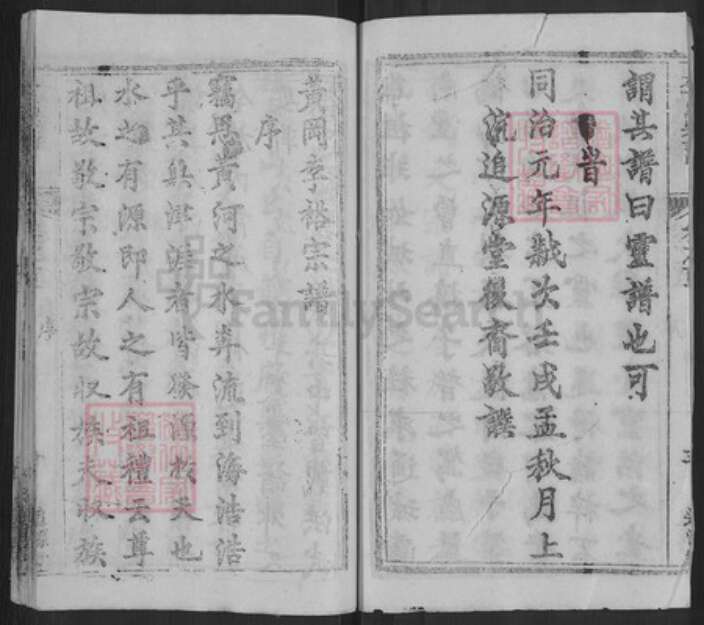 謂其譜曰靈譜也可
旹
同治元年歲次壬戌孟秋月上
流追源堂後裔敬譔
黃岡李裕宗譜
序
竊思黃河之水奔流到海浩浩
乎其無涯涘者皆發源於天也
水之有源即人之有祖禮云尊
祖故敬宗敬宗故収族夫収族
序
FamilySearch